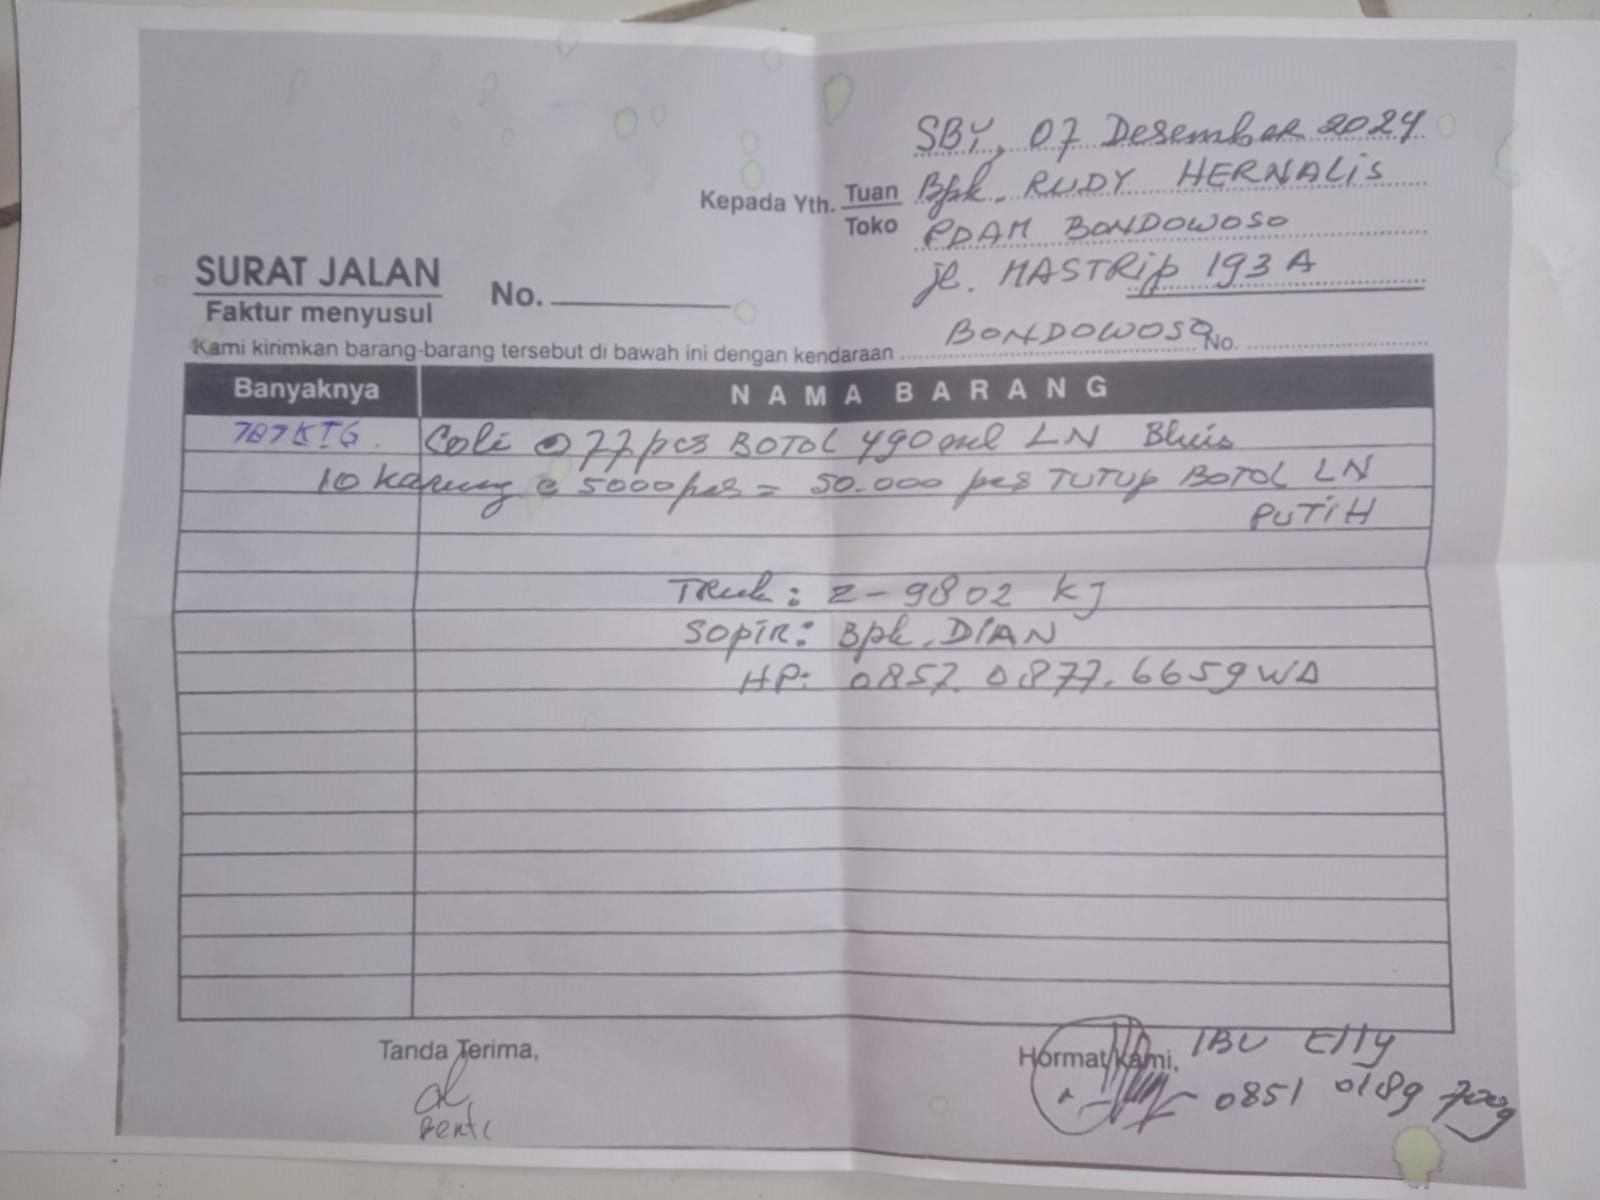 SBY, 07 Desember 2024
Kepada Yth. Tuan Bpk. RUDY HERNALIS
Toko PDAM BONDOWOSO
jl. MASTRip 193 A
SURAT JALAN
Faktur menyusul
No.
BONDOWOSO
Kami kirimkan barang-barang tersebut di bawah ini dengan kendaraan No.
Banyaknya NAMA BARANG
787 KTG. Coli @ 77 pcs BOTOL 490 ml LN
10 Karung @ 5000 pcs = 50.000 pcs TUTUP BOTOL LN
PUTIH
TRuk: Z-9802 KJ
SOPIR: Bpk. DIAN
HP: 0857. 0877. 6659 WA
Tanda Terima,
Hormat Kami, IBU Elly
0851 0189